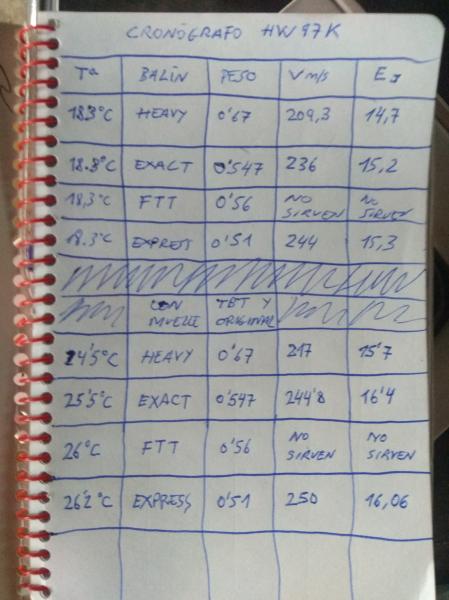 CRONÓGRAFO HW97K
Tª BALÍN PESO V m/s EJ
18.3°C HEAVY 0'67 209,3 14,7
18.8°C EXACT 0'547 236 15,2
18,3°C FTT 0'56 NO SIRVEN NO SIRVEN
18.3°C EXPRESS 0'51 244 15,3
CON MUELLE TBT Y ORIGINAL
24'5°C HEAVY 0'67 217 15'7
25'5°C EXACT 0'547 244'8 16'4
26°C FTT 0'56 NO SIRVEN NO SIRVEN
26'2°C EXPRESS 0'51 250 16,06